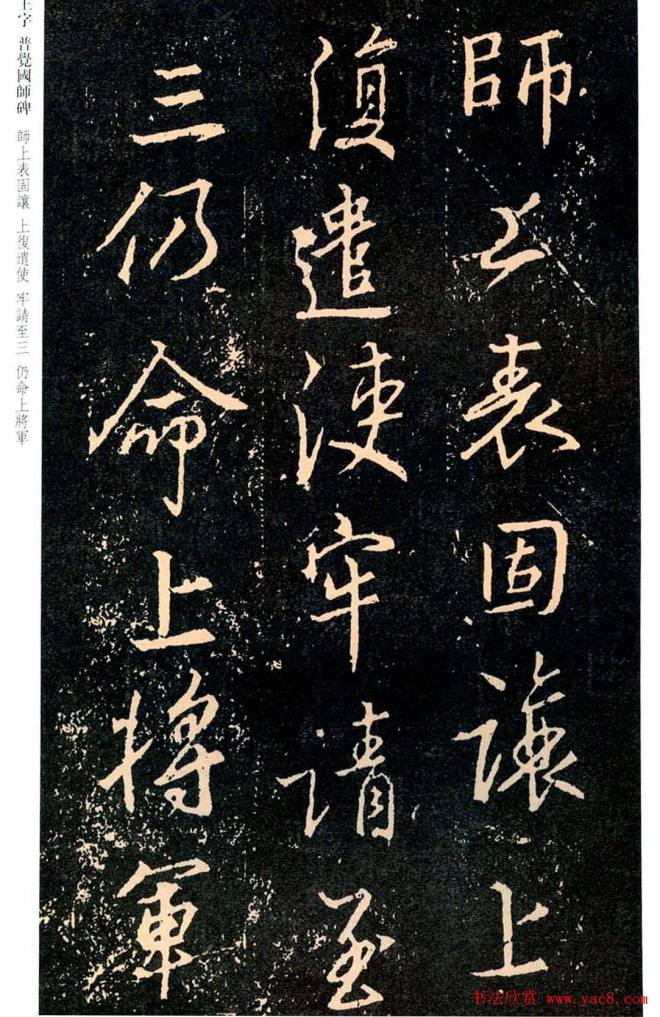 師上表固讓上
復遣使牢請至
三仍命上將軍
王字 普覺國師碑 師上表固讓 上復遣使 牢請至三 仍命上將軍
书法欣赏 www.yac8.com